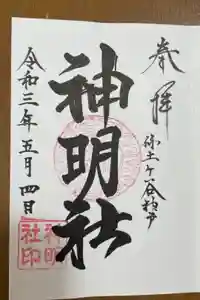 奉拝
保土ヶ谷
神明社
令和三年五月四日
神明
社印